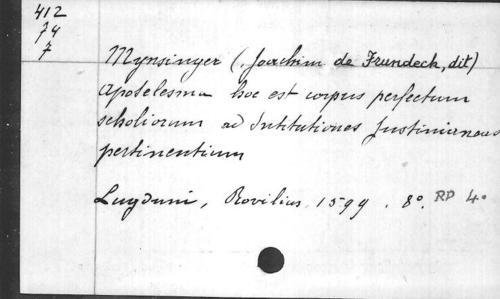 412
74
7
Mynsinger (Joachim de Frundeck, dit)
Apotelesma hoc est corpus perfectum
scholiorum ad Intitutiones Justinianaus
pertinentium
Lugduni, Rovilius. 1599. 8º. RP 4.